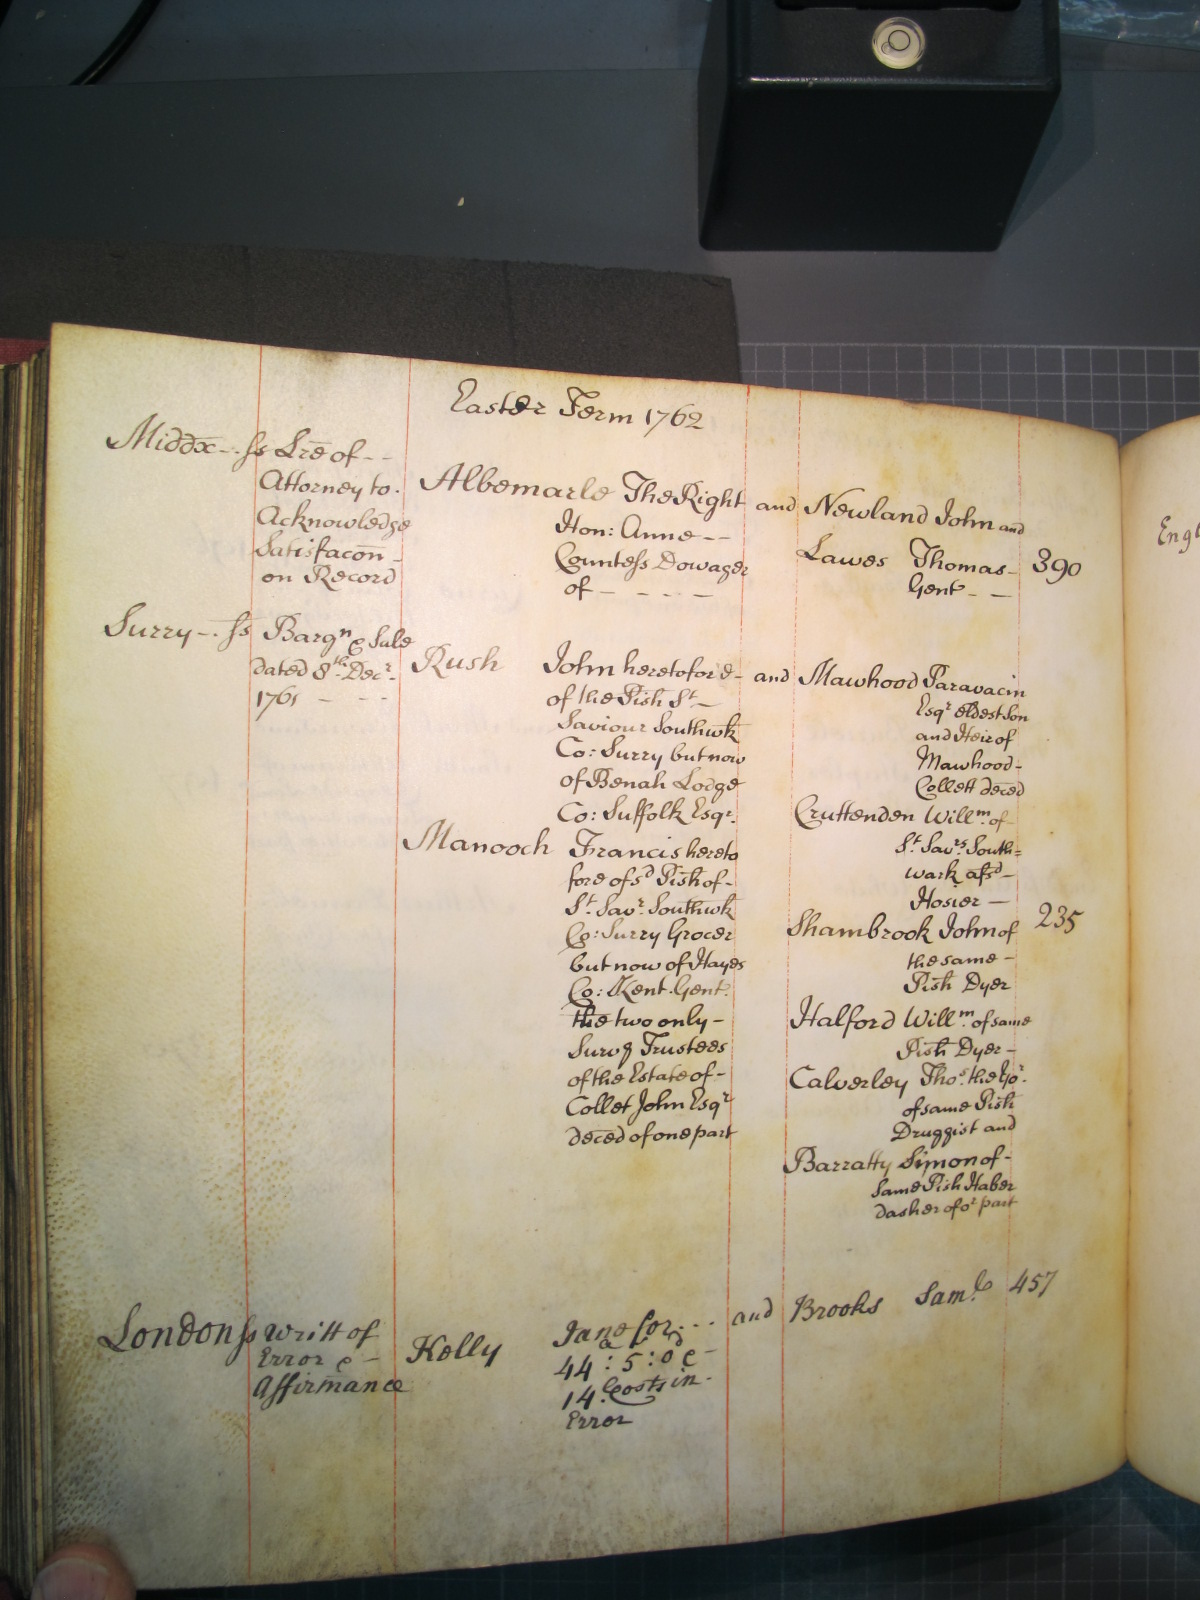 Easter Term 1762
Middx--. ss Lre of--
Attorney to.
Acknowledge
Satisfacon-
on Record
Albemarle The Right
Hon: Anne--
Countess Dowager
of - - - -
and
Newland John and
Lawes Thomas-
Gent - -
390
Surry-. ss Bargn & Sale
dated 8th. Decr.-
1761 - - -
Rush John heretofore-
of the Pish St-
Saviour Southwk
Co: Surry but now
of Benah Lodge
Co: Suffolk Esqr.
Manooch Francis hereto
fore of sd Pish of-
St. Savr. Southwk
Co: Surry Grocer
but now of Hayes
Co: Kent. Gent.
the two only-
Survg Trustees
of the Estate of-
Collet John Esqr
deced of one part
and
Mawhood Paravacin
Esqr eldest Son
and Heir of
Mawhood-
Collett deced
Cruttenden Willm. of-
St. Savrs. South=
wark afsd-
Hosier-
Shambrook John of
the same-
Pish Dyer
235
Halford Willm. of same
Pish Dyer-
Calverley Thos. the Yor.
of same Pish
Druggist and
Barratty Simon of-
same Pish Haber
dasher of or part
London ss Writt of
Error &-
Affirmance
Kelly Jane for...
44: 5: 0 &-
14. Costs in-
Error
and Brooks Saml. 457
Engl